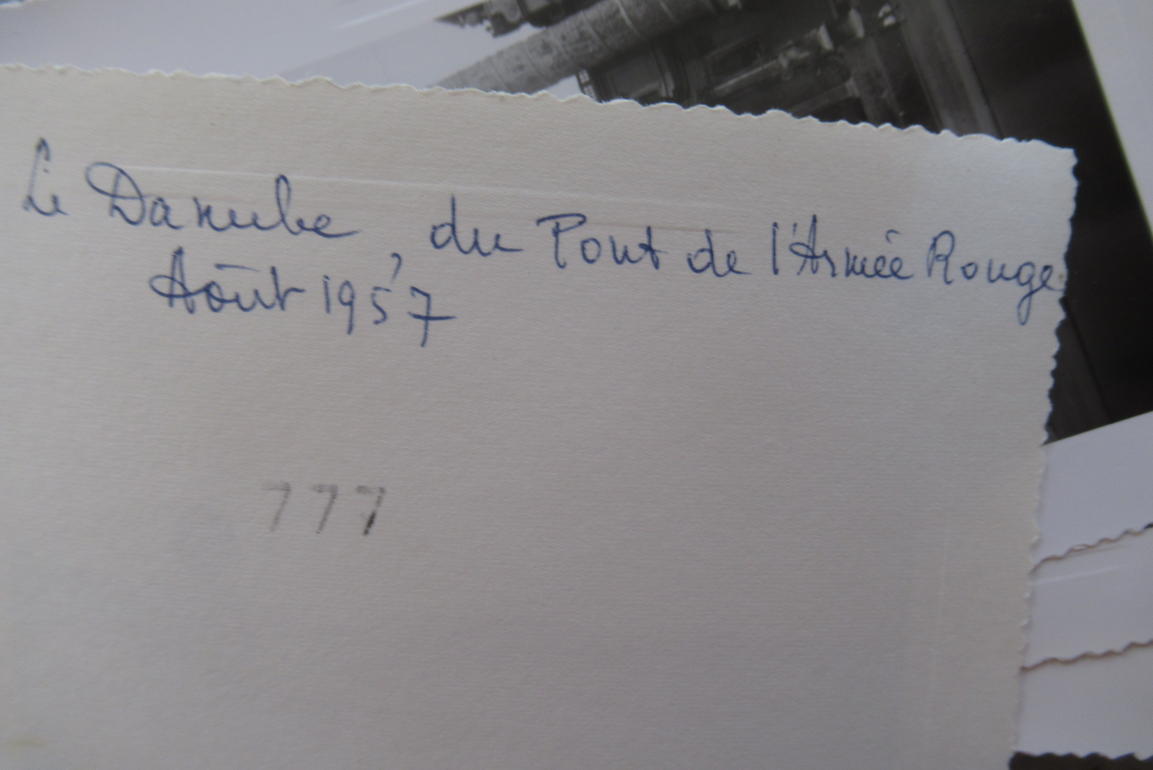 Le Danube, du Pont de l'Armée Rouge
Août 1957
777